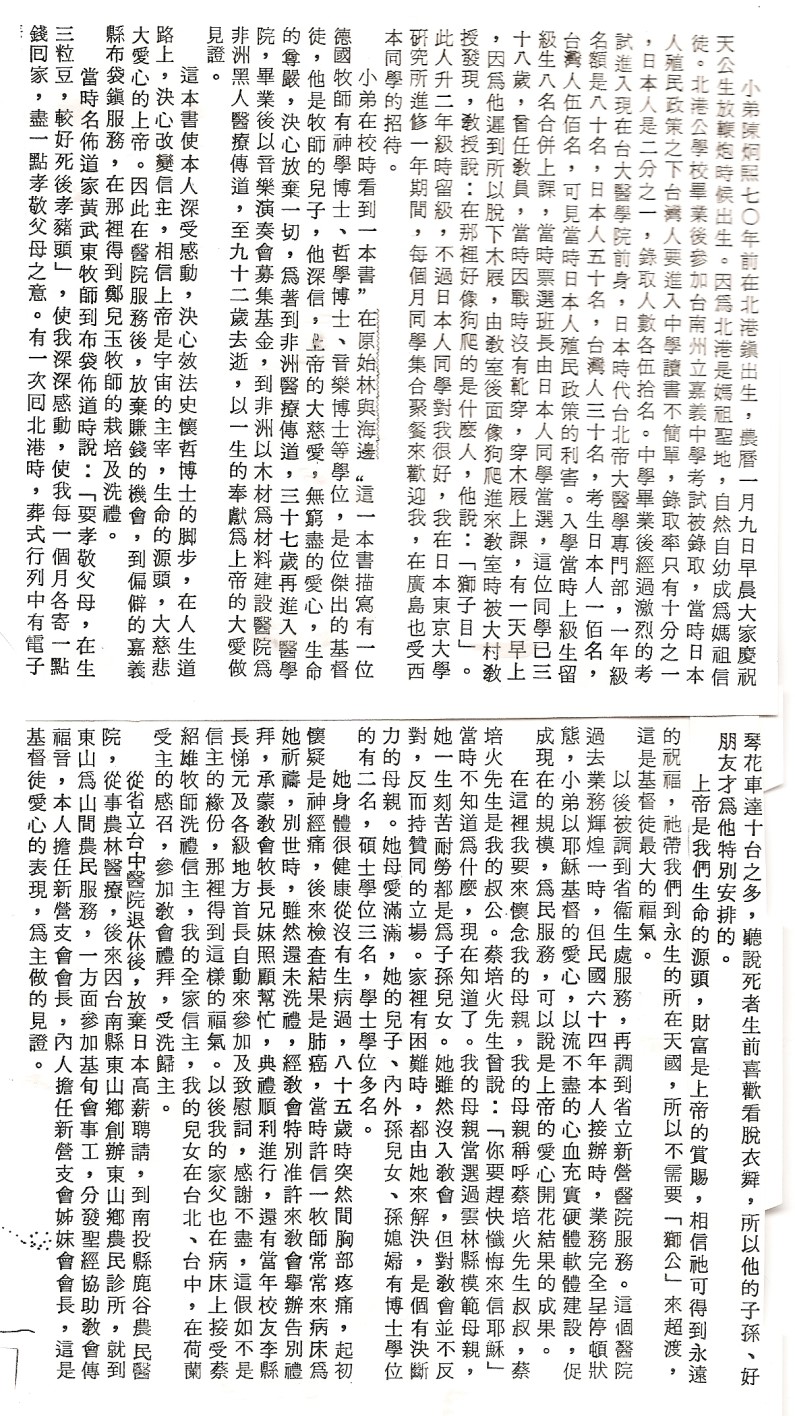 小弟陳炯熙七〇年前在北港鎮出生，農曆一月九日早晨大家慶祝
天公生放鞭炮時候出生。因爲北港是媽祖聖地，自然自幼成爲媽祖信
徒。北港公學校畢業後參加台南州立嘉義中學考試被錄取，當時日本
人殖民政策之下台灣人要進入中學讀書不簡單，錄取率只有十分之一
，日本人是二分之一，錄取人數各伍拾名。中學畢業後經過激烈的考
試進入現在台大醫學院前身，日本時代台北帝大醫學專門部，一年級
名額是八十名，日本人五十名，台灣人三十名，考生日本人一佰名，
台灣人伍佰名，可見當時日本人殖民政策的利害。入學當時上級生留
級生八名合併上課，當時票選班長由日本人同學當選，這位同學已三
十八歲，曾任教員，當時因戰時沒有靴穿，穿木屐上課，有一天早上
，因爲他遲到所以脫下木屐，由教室後面像狗爬進來教室時被大村教
授發現，教授說：在那裡好像狗爬的是什麽人，他說：「獅子目」。
此人升二年級時留級，不過日本人同學對我很好，我在日本東京大學
研究所進修一年期間，每個月同學集合聚餐來歡迎我，在廣島也受西
本同學的招待。
小弟在校時看到一本書”在原始林與海邊“這一本書描寫有一位
德國牧師有神學博士、哲學博士、音樂博士等學位，是位傑出的基督
徒，他是牧師的兒子，他深信，上帝的大慈愛，無窮盡的愛心，生命
的尊嚴，決心放棄一切，爲著到非洲醫療傳道，三十七歲再進入醫學
院，畢業後以音樂演奏會募集基金，到非洲以木材爲材料建設醫院爲
非洲黑人醫療傳道，至九十二歲去逝，以一生的奉獻爲上帝的大愛做
見證。
這本書使本人深受感動，決心效法史懷哲博士的脚步，在人生道
路上，決心改變信主，相信上帝是宇宙的主宰，生命的源頭，大慈悲
大愛心的上帝。因此在醫院服務後，放棄賺錢的機會，到偏僻的嘉義
縣布袋鎭服務，在那裡得到鄭兒玉牧師的栽培及洗禮。
當時名佈道家黃武東牧師到布袋佈道時說：「要孝敬父母，在生
三粒豆，較好死後孝豬頭」，使我深深感動，使我每一個月各寄一點
錢回家，盡一點孝敬父母之意。有一次回北港時，葬式行列中有電子
琴花車達十台之多，聽說死者生前喜歡看脫衣舞，所以他的子孫、好
朋友才爲他特別安排的。
上帝是我們生命的源頭，財富是上帝的賞賜，相信祂可得到永遠
的祝福，祂帶我們到永生的所在天國，所以不需要「獅公」來超渡，
這是基督徒最大的福氣。
以後被調到省衞生處服務，再調到省立新營醫院服務。這個醫院
過去業務輝煌一時，但民國六十四年本人接辦時，業務完全呈停頓狀
態，小弟以耶穌基督的愛心，以流不盡的心血充實硬體軟體建設，促
成現在的規模，爲民服務，可以說是上帝的愛心開花結果的成果。
在這裡我要來懷念我的母親，我的母親稱呼蔡培火先生叔叔，蔡
培火先生是我的叔公。蔡培火先生曾說：「你要趕快懺悔來信耶穌」
當時不知道爲什麽，現在知道了。我的母親當選過雲林縣模範母親，
她一生刻苦耐勞都是爲子孫兒女。她雖然沒入教會，但對教會並不反
對，反而持贊同的立場。家裡有困難時，都由她來解決，是個有決斷
力的母親。她母愛滿滿，她的兒子、內外孫兒女、孫媳婦有博士學位
的有二名，碩士學位三名，學士學位多名。
她身體很健康從沒有生病過，八十五歲時突然間胸部疼痛，起初
懷疑是神經痛，後來檢查結果是肺癌，當時許信一牧師常常來病床爲
她祈禱，別世時，雖然還未洗禮，經教會特別准許來教會舉辦告別禮
拜，承蒙教會牧長兄妹照顧幫忙，典禮順利進行，還有當年校友李縣
長悌元及各級地方首長自動來參加及致慰詞，感謝不盡，這假如不是
信主的緣份，那裡得到這樣的福氣。以後我的家父也在病床上接受蔡
紹雄牧師洗禮信主，我的全家信主，我的兒女在台北、台中，在荷蘭
受主的感召，參加教會禮拜，受洗歸主。
從省立台中醫院退休後，放棄日本高薪聘請，到南投縣鹿谷農民醫
院，從事農林醫療，後來因台南縣東山鄉創辦東山鄉農民診所，就到
東山爲山間農民服務，一方面參加基甸會事工，分發聖經協助教會傳
福音，本人擔任新營支會會長，內人擔任新營支會姊妹會會長，這是
基督徒愛心的表現，爲主做的見證。